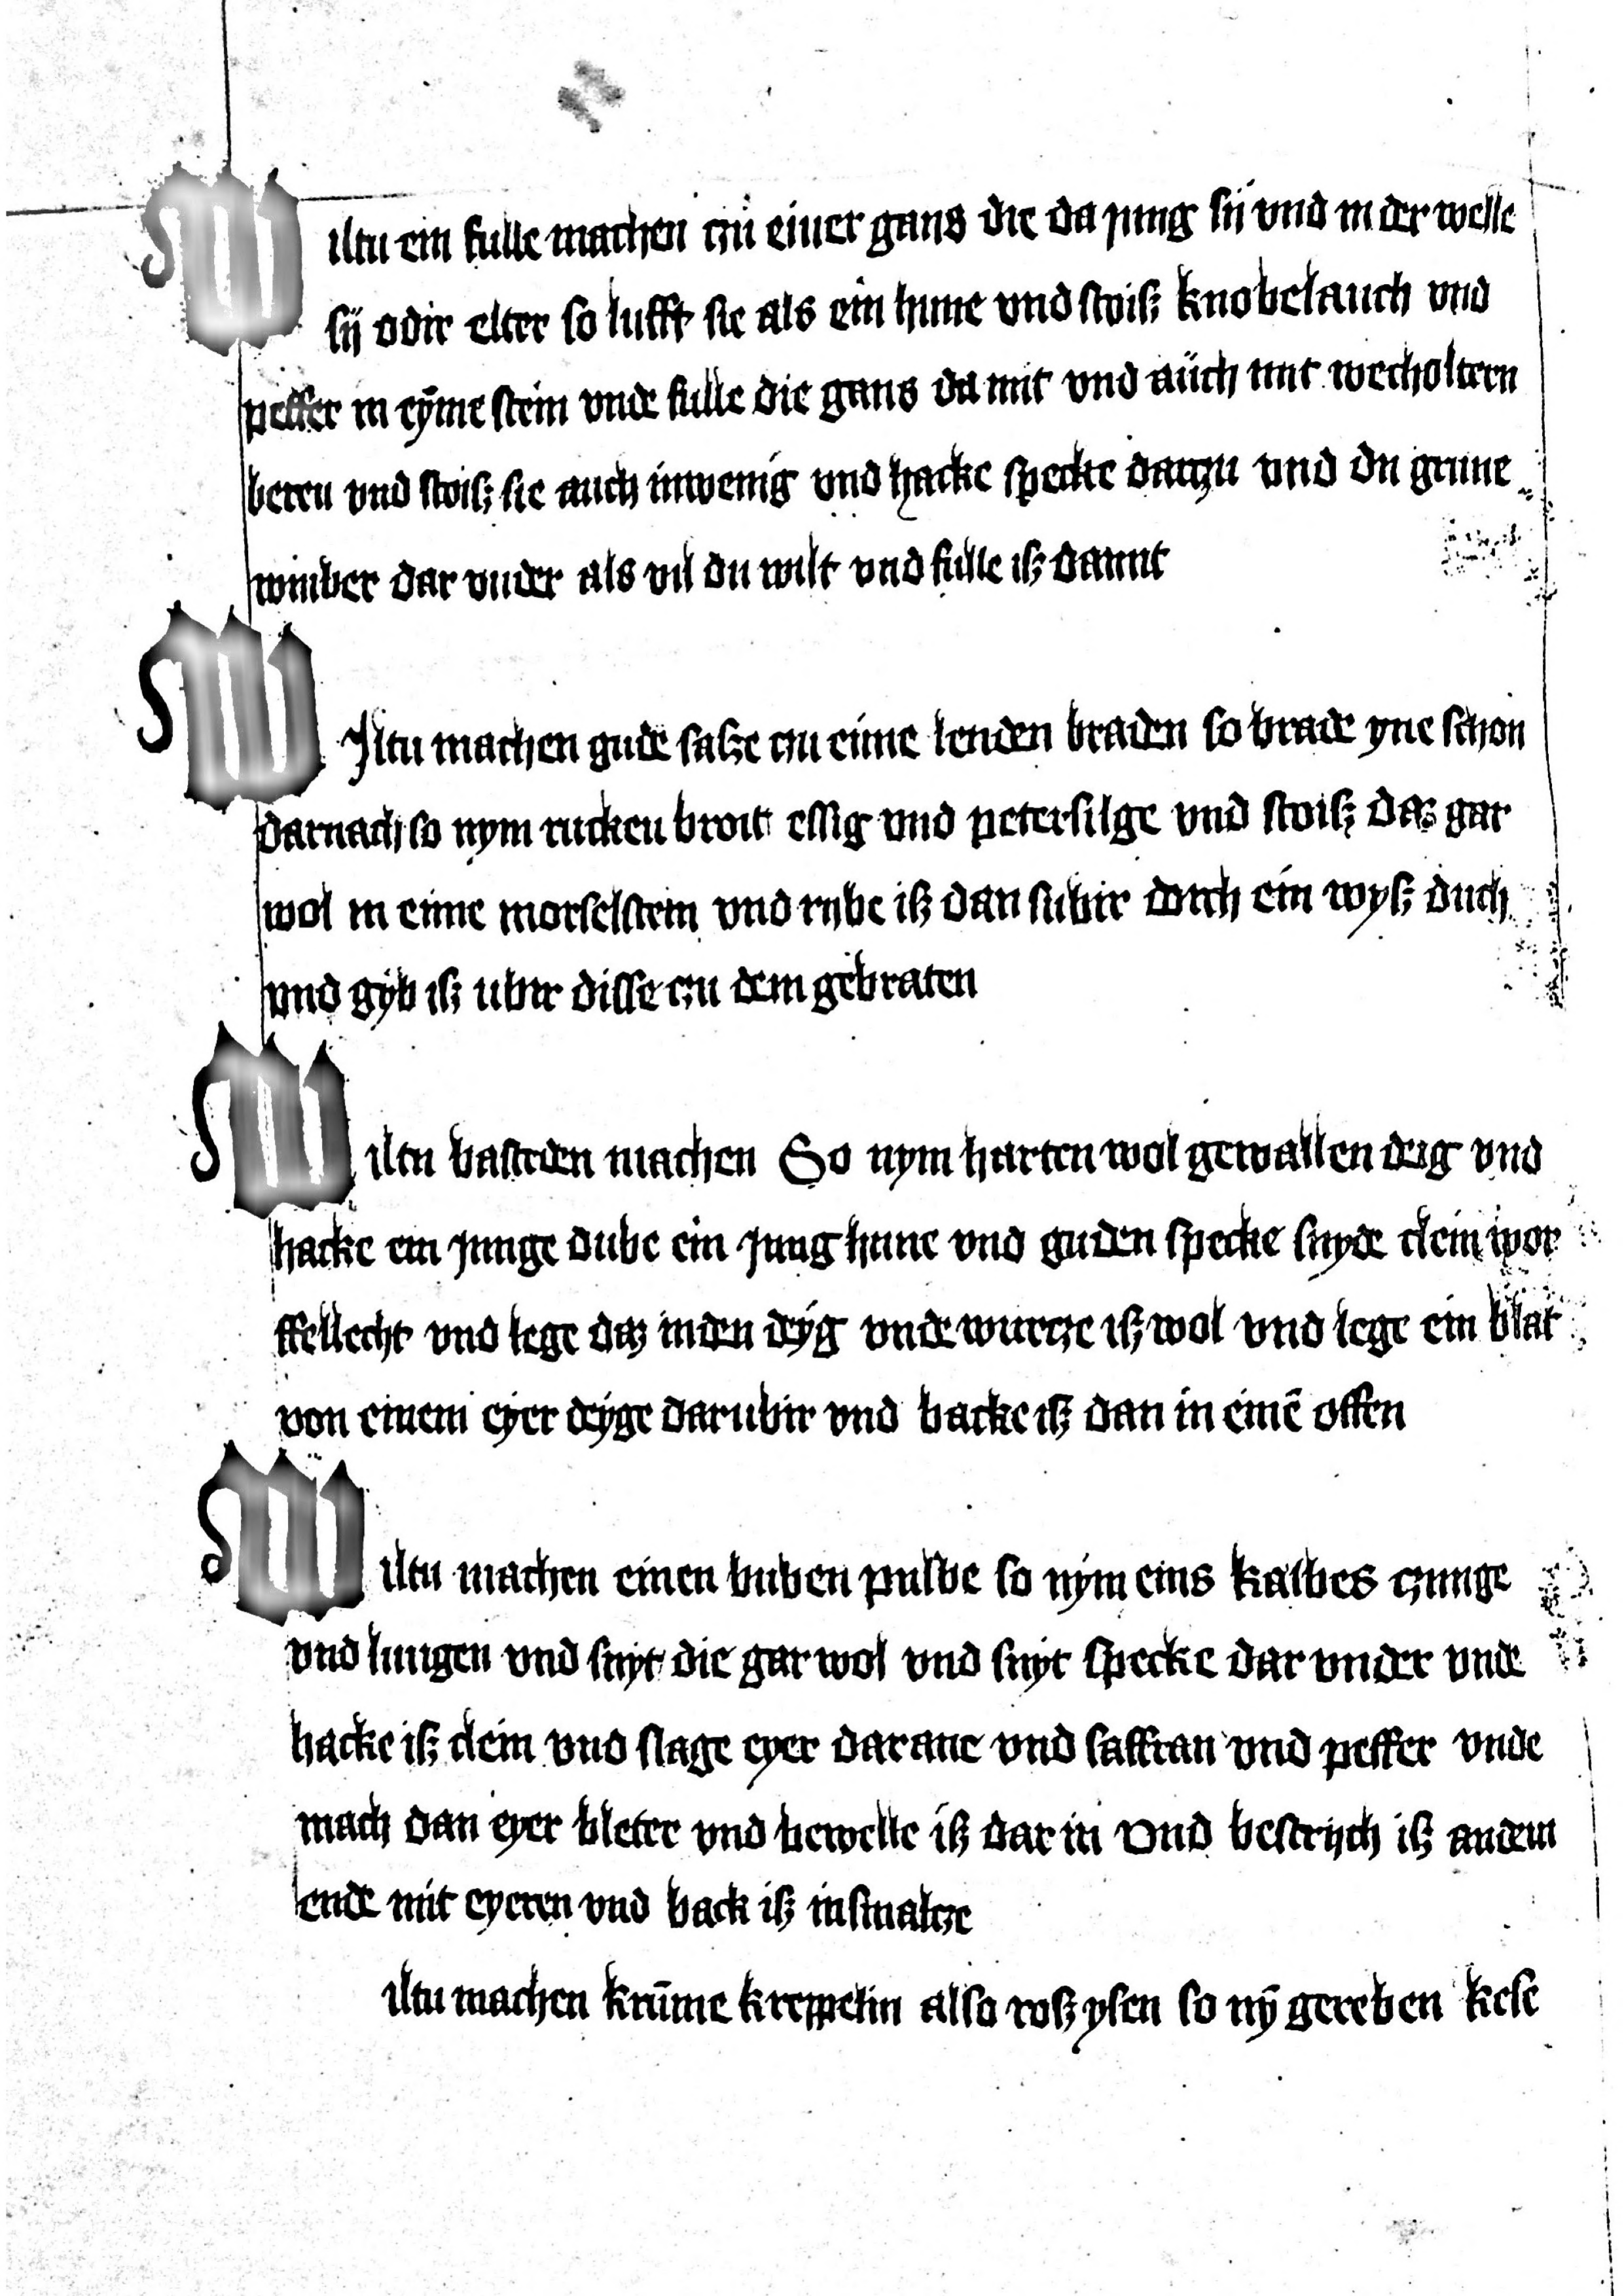 Wiltu ein fulle machen czu einer gans die da jung sij vnd in der welle
sij odir elter so lufft sie als ein hune vnd stoiß knobelauch vnd
peffer in eyme stein vnde fulle die gans da mit vnd auch mit wecholtern
beren vnd stoiß sie auch inwenig vnd hacke specke darczu vnd du grune
winber dar vnder als vil du wilt vnd fulle iß damit
WIltu machen gude salße czu eime lenden braden so brade yne schon
darnach so nym rucken broit essig vnd petersilge vnd stoiß daz gar
wol in eime morselstein vnd rybe iß dan subir dorch ein wyß duch
vnd gyb iß ubir disse czu dem gebraten
Wiltu basteden machen So nym harten wol gewallen deig vnd
hacke ein junge dube ein jung hune vnd guden specke snyde clein wor
ffellecht vnd lege daz in den deyg vnde wurcze iß wol vnd lege ein blat
von einem eyer deyge darubir vnd backe iß dan in einē offen
Wiltu machen einen buben pulbe so nym eins kalbes czunge
vnd lungen vnd snyt die gar wol vnd snyt specke dar vnder vnde
hacke iß clein vnd slage eyer darane vnd saffran vnd peffer vnde
mach dan eyer bleter vnd bewelle iß dar in vnd bestrijch iß an dem
ende mit eyeren vnd back iß in smalcze
iltu machen krūme kreppelin also roß ysen so nȳ gereben kese